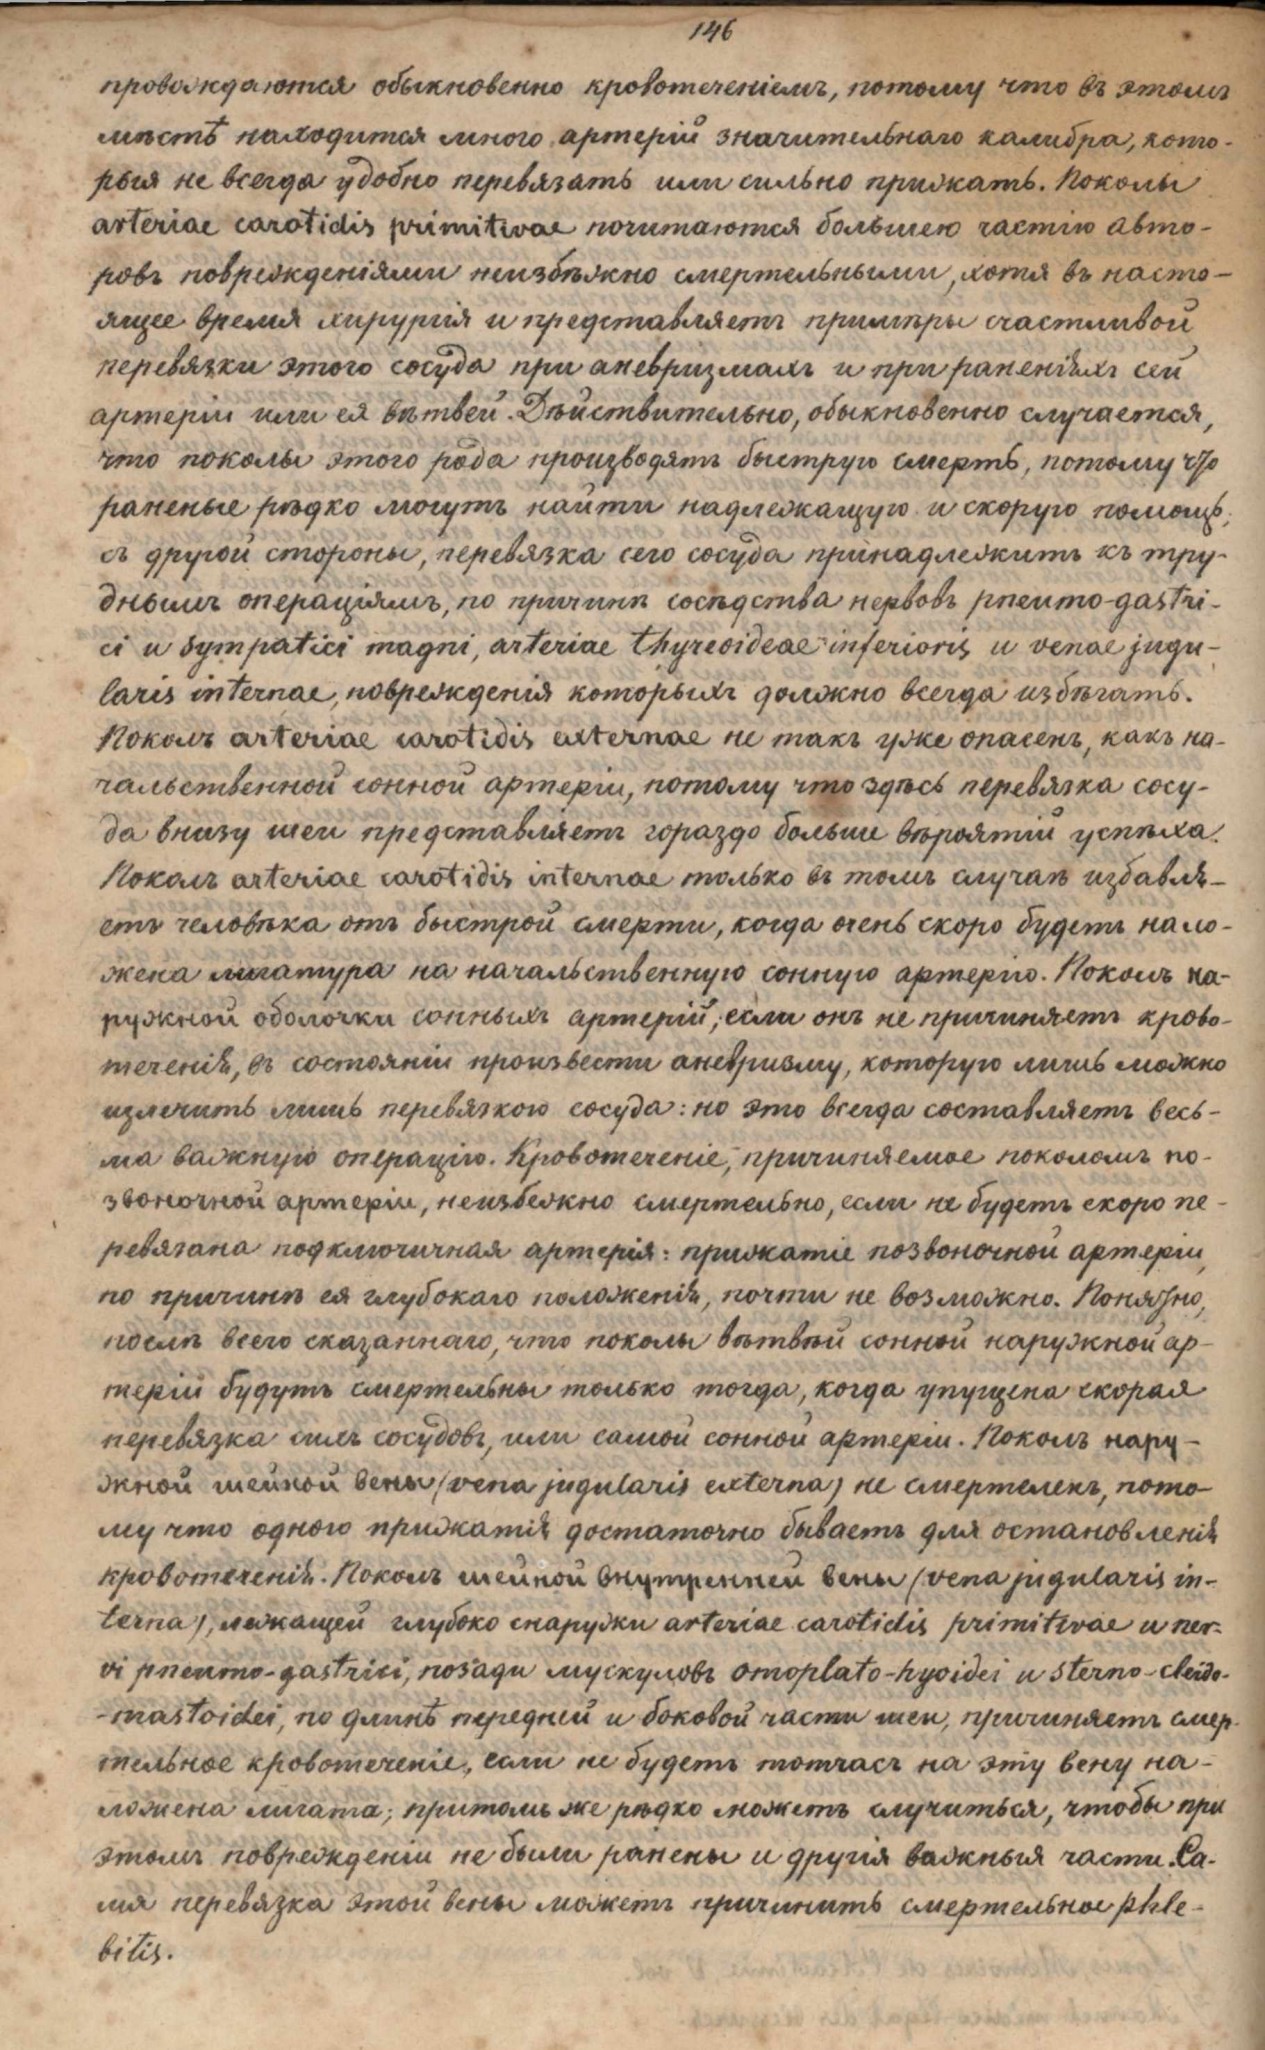 146
провождаются обыкновенно кровотеченіемъ, потому что въ этомъ
мѣстѣ находится много артерій значительнаго калибра, кото-
рыя не всегда удобно перевязать или сильно прижать. Поколы
arteriae carotidis primitivae почитаются большею частію авто-
ровъ поврежденіями неизбѣжно смертельными, хотя въ насто-
ящее время хирургія и представляетъ примѣры счастливой
перевязки этого сосуда при аневризмахъ и при раненіяхъ сей
артеріи или ея вѣтвей. Дѣйствительно, обыкновенно случается,
что поколы этого рода производятъ быструю смерть, потому что
раненые рѣдко могутъ найти надлежащую и скорую помощь;
съ другой стороны, перевязка сего сосуда принадлежитъ къ тру-
днымъ операціямъ, по причинѣ сосѣдства нервовъ pneumo-gastri-
ci и sympatici magni, arteriae thyreoideae inferioris и venae jugu-
laris internae, поврежденія которыхъ должно всегда избѣгать.
Поколъ arteriae carotidis externae не такъ уже опасенъ, какъ на-
чальственной сонной артеріи, потому что здѣсь перевязка сосу-
да внизу шеи представляетъ гораздо больше вѣроятій успѣха.
Поколъ arteriae carotidis internae только въ томъ случаѣ избавля-
етъ человѣка отъ быстрой смерти, когда очень скоро будетъ нало-
жена лигатура на начальственную сонную артерію. Поколъ на-
ружной оболочки сонныхъ артерій, если онъ не причиняетъ крово-
теченія, въ состояніи произвести аневризму, которую лишь можно
излечить лишь перевязкою сосуда: но это всегда составляетъ весь-
ма важную операцію. Кровотеченіе, причиняемое поколомъ по-
звоночной артеріи, неизбежно смертельно, если не будетъ скоро пе-
ревязана подключичная артерія: прижатіе позвоночной артеріи,
по причинѣ ея глубокаго положенія, почти не возможно. Понятно,
послѣ всего сказаннаго, что поколы вѣтвѣй сонной наружной ар-
теріи будутъ смертельны только тогда, когда упущена скорая
перевязка сихъ сосудовъ, или самой сонной артеріи. Поколъ нару-
жной шейной вены (vena jugularis externa) не смертеленъ, пото-
му что одного прижатія достаточно бываетъ для остановленія
кровотеченія. Поколъ шейной внутренней вены (vena jugularis in-
terna), лежащей глубоко снаружи arteriae carotidis primitivae и ner-
vi pneumo-gastrici, позади мускуловъ omoplato-hyoidei и sterno-cleido-
-mastoidei, по длинѣ передней и боковой части шеи, причиняетъ смер-
тельное кровотеченіе, если не будетъ тотчасъ на эту вену на-
ложена лигата; притомъ же рѣдко можетъ случиться, чтобы при
этомъ поврежденіи не были ранены и другія важныя части. Са-
мя перевязка этой вены можетъ причинить смертельное phle-
bitis.